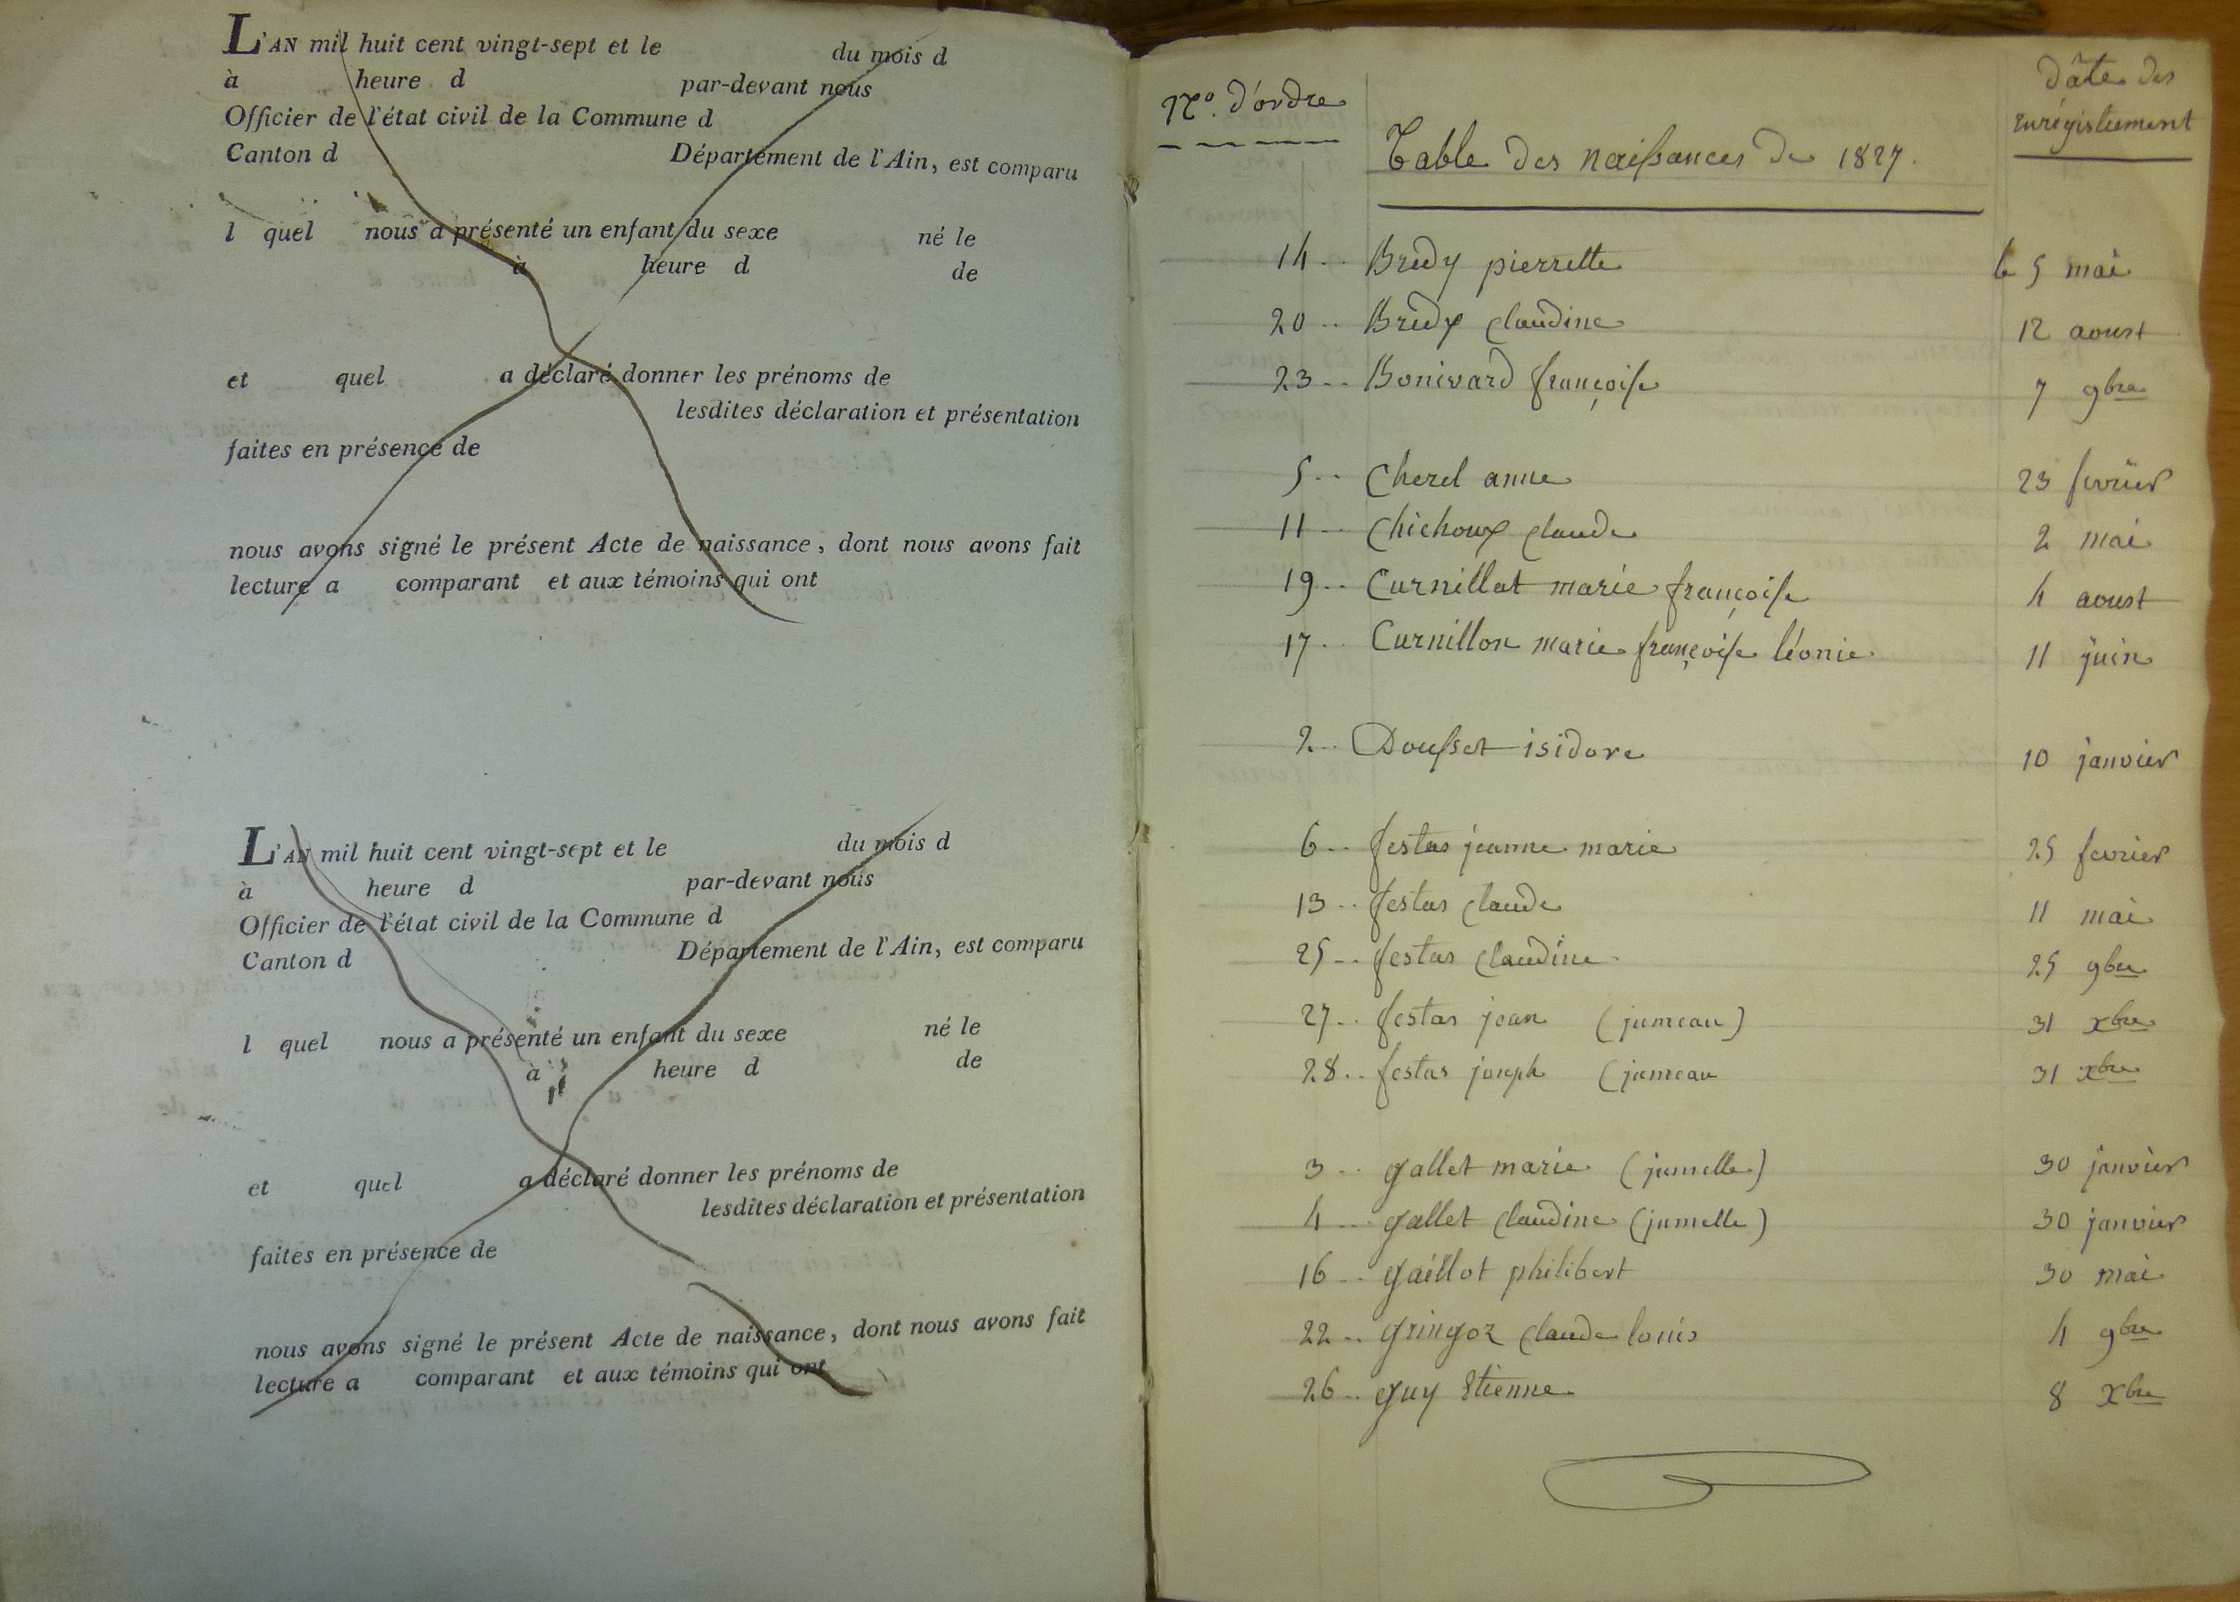 L'AN mil huit cent vingt-sept et le du mois d
à heure d par-devant nous
Officier de l'état civil de la Commune d
Canton d Département de l'Ain, est comparu
l quel nous a présenté un enfant du sexe né le
à heure d de
et quel a déclaré donner les prénoms de
lesdites déclaration et présentation
faites en présence de
nous avons signé le présent Acte de naissance, dont nous avons fait
lecture a comparant et aux témoins qui ont
L'AN mil huit cent vingt-sept et le du mois d
à heure d par-devant nous
Officier de l'état civil de la Commune d
Canton d Département de l'Ain, est comparu
l quel nous a présenté un enfant du sexe né le
à heure d de
et quel a déclaré donner les prénoms de
lesdites déclaration et présentation
faites en présence de
nous avons signé le présent Acte de naissance, dont nous avons fait
lecture a comparant et aux témoins qui ont
No. d'ordre
Table des naissances de 1827.
dâte des
enrégistrement
14 .. Bredy pierrette le 5 mai
20 .. Bredy claudine 12 aoust
23 .. Bonivard françoise 7 9bre
5 .. Cherel anne 23 fevrier
11 .. Chichoux claude 2 mai
19 .. Curnillat marie françoise 4 aoust
17 .. Curnillon marie françoise léonie 11 juin
2 .. Dousset isidore 10 janvier
6 .. festas jeanne marie 25 fevrier
13 .. festas claude 11 mai
25 .. festas claudine 25 9bre
27 .. festas jean (jumeau) 31 xbre
28 .. festas joseph (jumeau 31 xbre
3 .. gallet marie (jumelle) 30 janvier
4 .. gallet claudine (jumelle) 30 janvier
16 .. gaillot philibert 30 mai
22 .. gringoz claude louis 4 9bre
26 .. guy Etienne 8 xbre